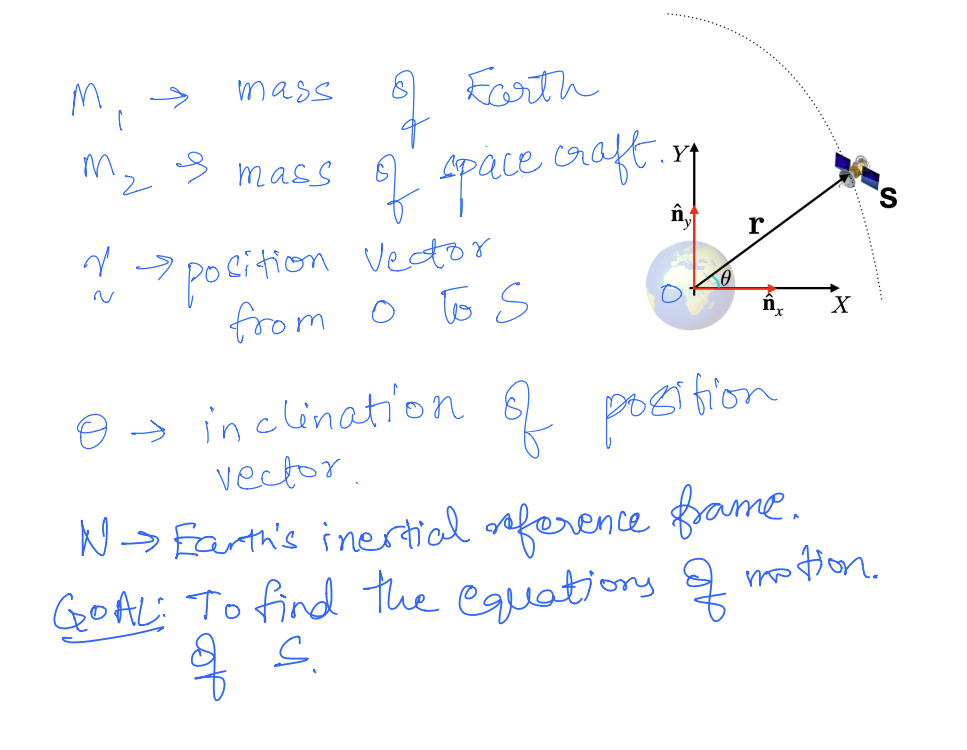 M₁ → mass of Earth
M₂ → mass of space craft.
r → position vector
from O to S
θ → inclination of position
vector.
N → Earth's inertial reference frame.
GOAL: To find the equations of motion.
of S.
Y
n̂y
r
S
O
θ
n̂x
X